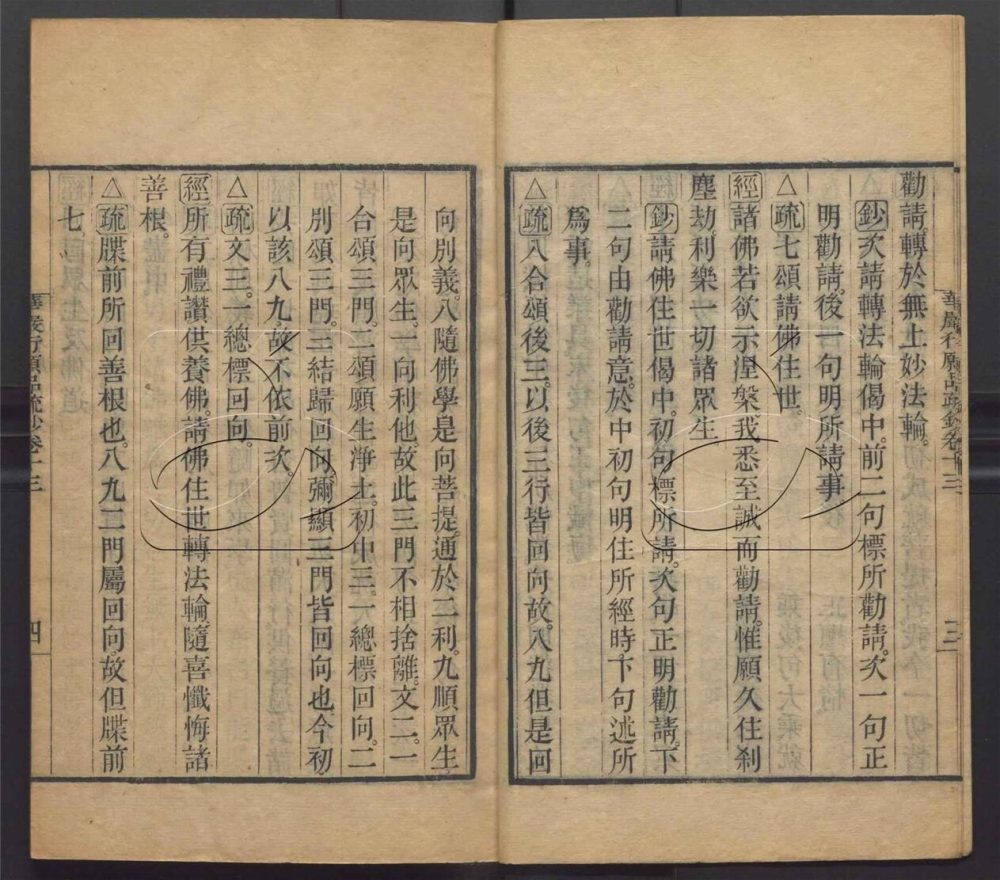 勸請。轉於無上妙法輪。
鈔次請轉法輪偈中。前二句標所勸請。次一句正
明勸請。後一句明所請事。
△疏七頌請佛住世。
經諸佛若欲示涅槃。我悉至誠而勸請。惟願久住剎
塵劫。利樂一切諸眾生。
鈔請佛住世偈中。初句標所請。次句正明勸請。下
二句由勸請意。於中初句明住所經時。下句述所
爲事。
△疏八合頌後三。以後三行皆回向故。八九但是回
華嚴行願品疏鈔卷十三
三
向別義。八隨佛學是向菩提。通於二利。九順眾生
是向眾生。一向利他。故此三門不相捨離。文二。一
合頌三門。二頌願生淨土。初中三。一總標回向。二
別頌三門。三結歸回向。彌顯三門皆回向也。今初
以該八九。故不依前次。
△疏文三。一總標回向。
經所有禮讚供養佛。請佛住世轉法輪。隨喜懺悔諸
善根。
△疏牒前所回善根也。八九二門屬回向。故但牒前
七
華嚴行願品疏鈔卷十三
四